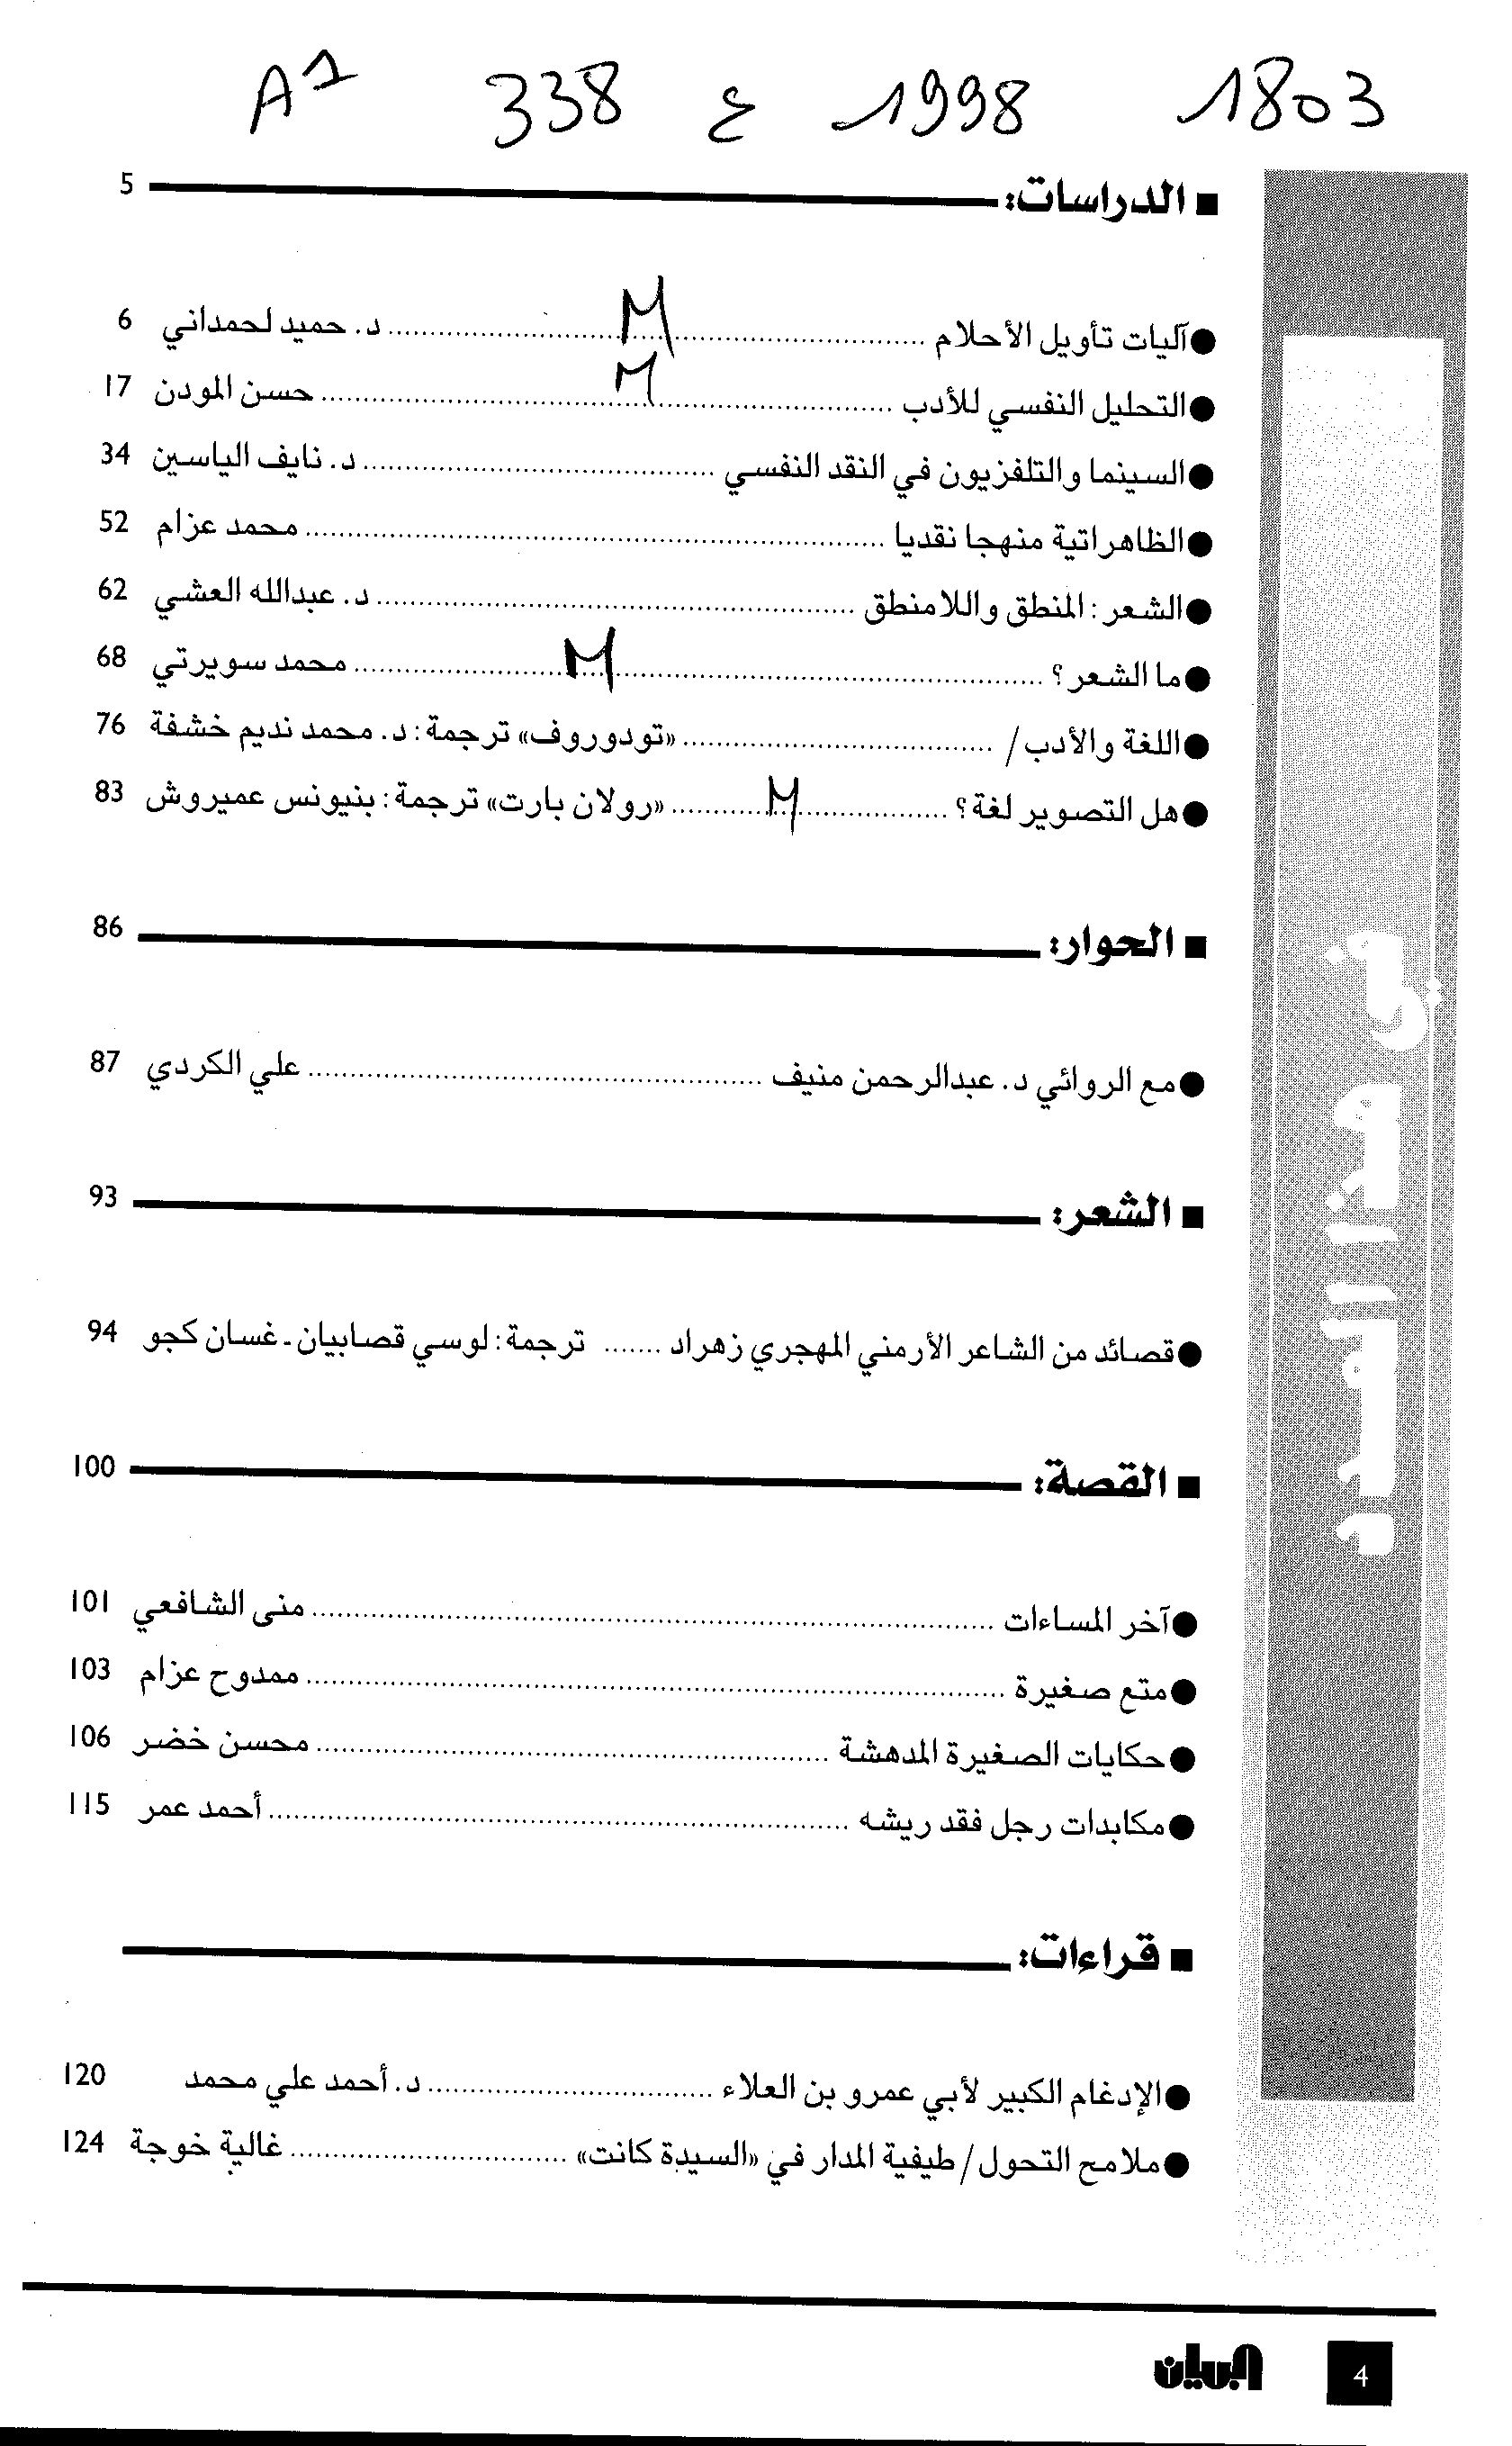 A1 338 ع 1998 1803
■ الدراسات: 5
●آليات تأويل الأحلام ........ د. حميد لحمداني 6
M
●التحليل النفسي للأدب ........ حسن المودن 17
M
●السينما والتلفزيون في النقد النفسي ........ د. نايف الياسين 34
●الظاهراتية منهجا نقديا ........ محمد عزام 52
●الشعر: المنطق واللامنطق ........ د. عبدالله العشي 62
●ما الشعر؟ ........ محمد سويرتي 68
M
●اللغة والأدب/ ........ «تودوروف» ترجمة: د. محمد نديم خشفة 76
●هل التصوير لغة؟ ........ «رولان بارت» ترجمة: بنيونس عميروش 83
M
■ الحوار: 86
●مع الروائي د. عبدالرحمن منيف ........ علي الكردي 87
■ الشعر: 93
●قصائد من الشاعر الأرمني المهجري زهراد ....... ترجمة: لوسي قصابيان ـ غسان كجو 94
■ القصة: 100
●آخر المساءات ........ منى الشافعي 101
●متع صغيرة ........ ممدوح عزام 103
●حكايات الصغيرة المدهشة ........ محسن خضر 106
●مكابدات رجل فقد ريشه ........ أحمد عمر 115
■ قراءات:
●الإدغام الكبير لأبي عمرو بن العلاء ........ د. أحمد علي محمد 120
●ملامح التحول/ طيفية المدار في «السيدة كانت» ........ غالية خوجة 124
في هذا العدد
البيان
4